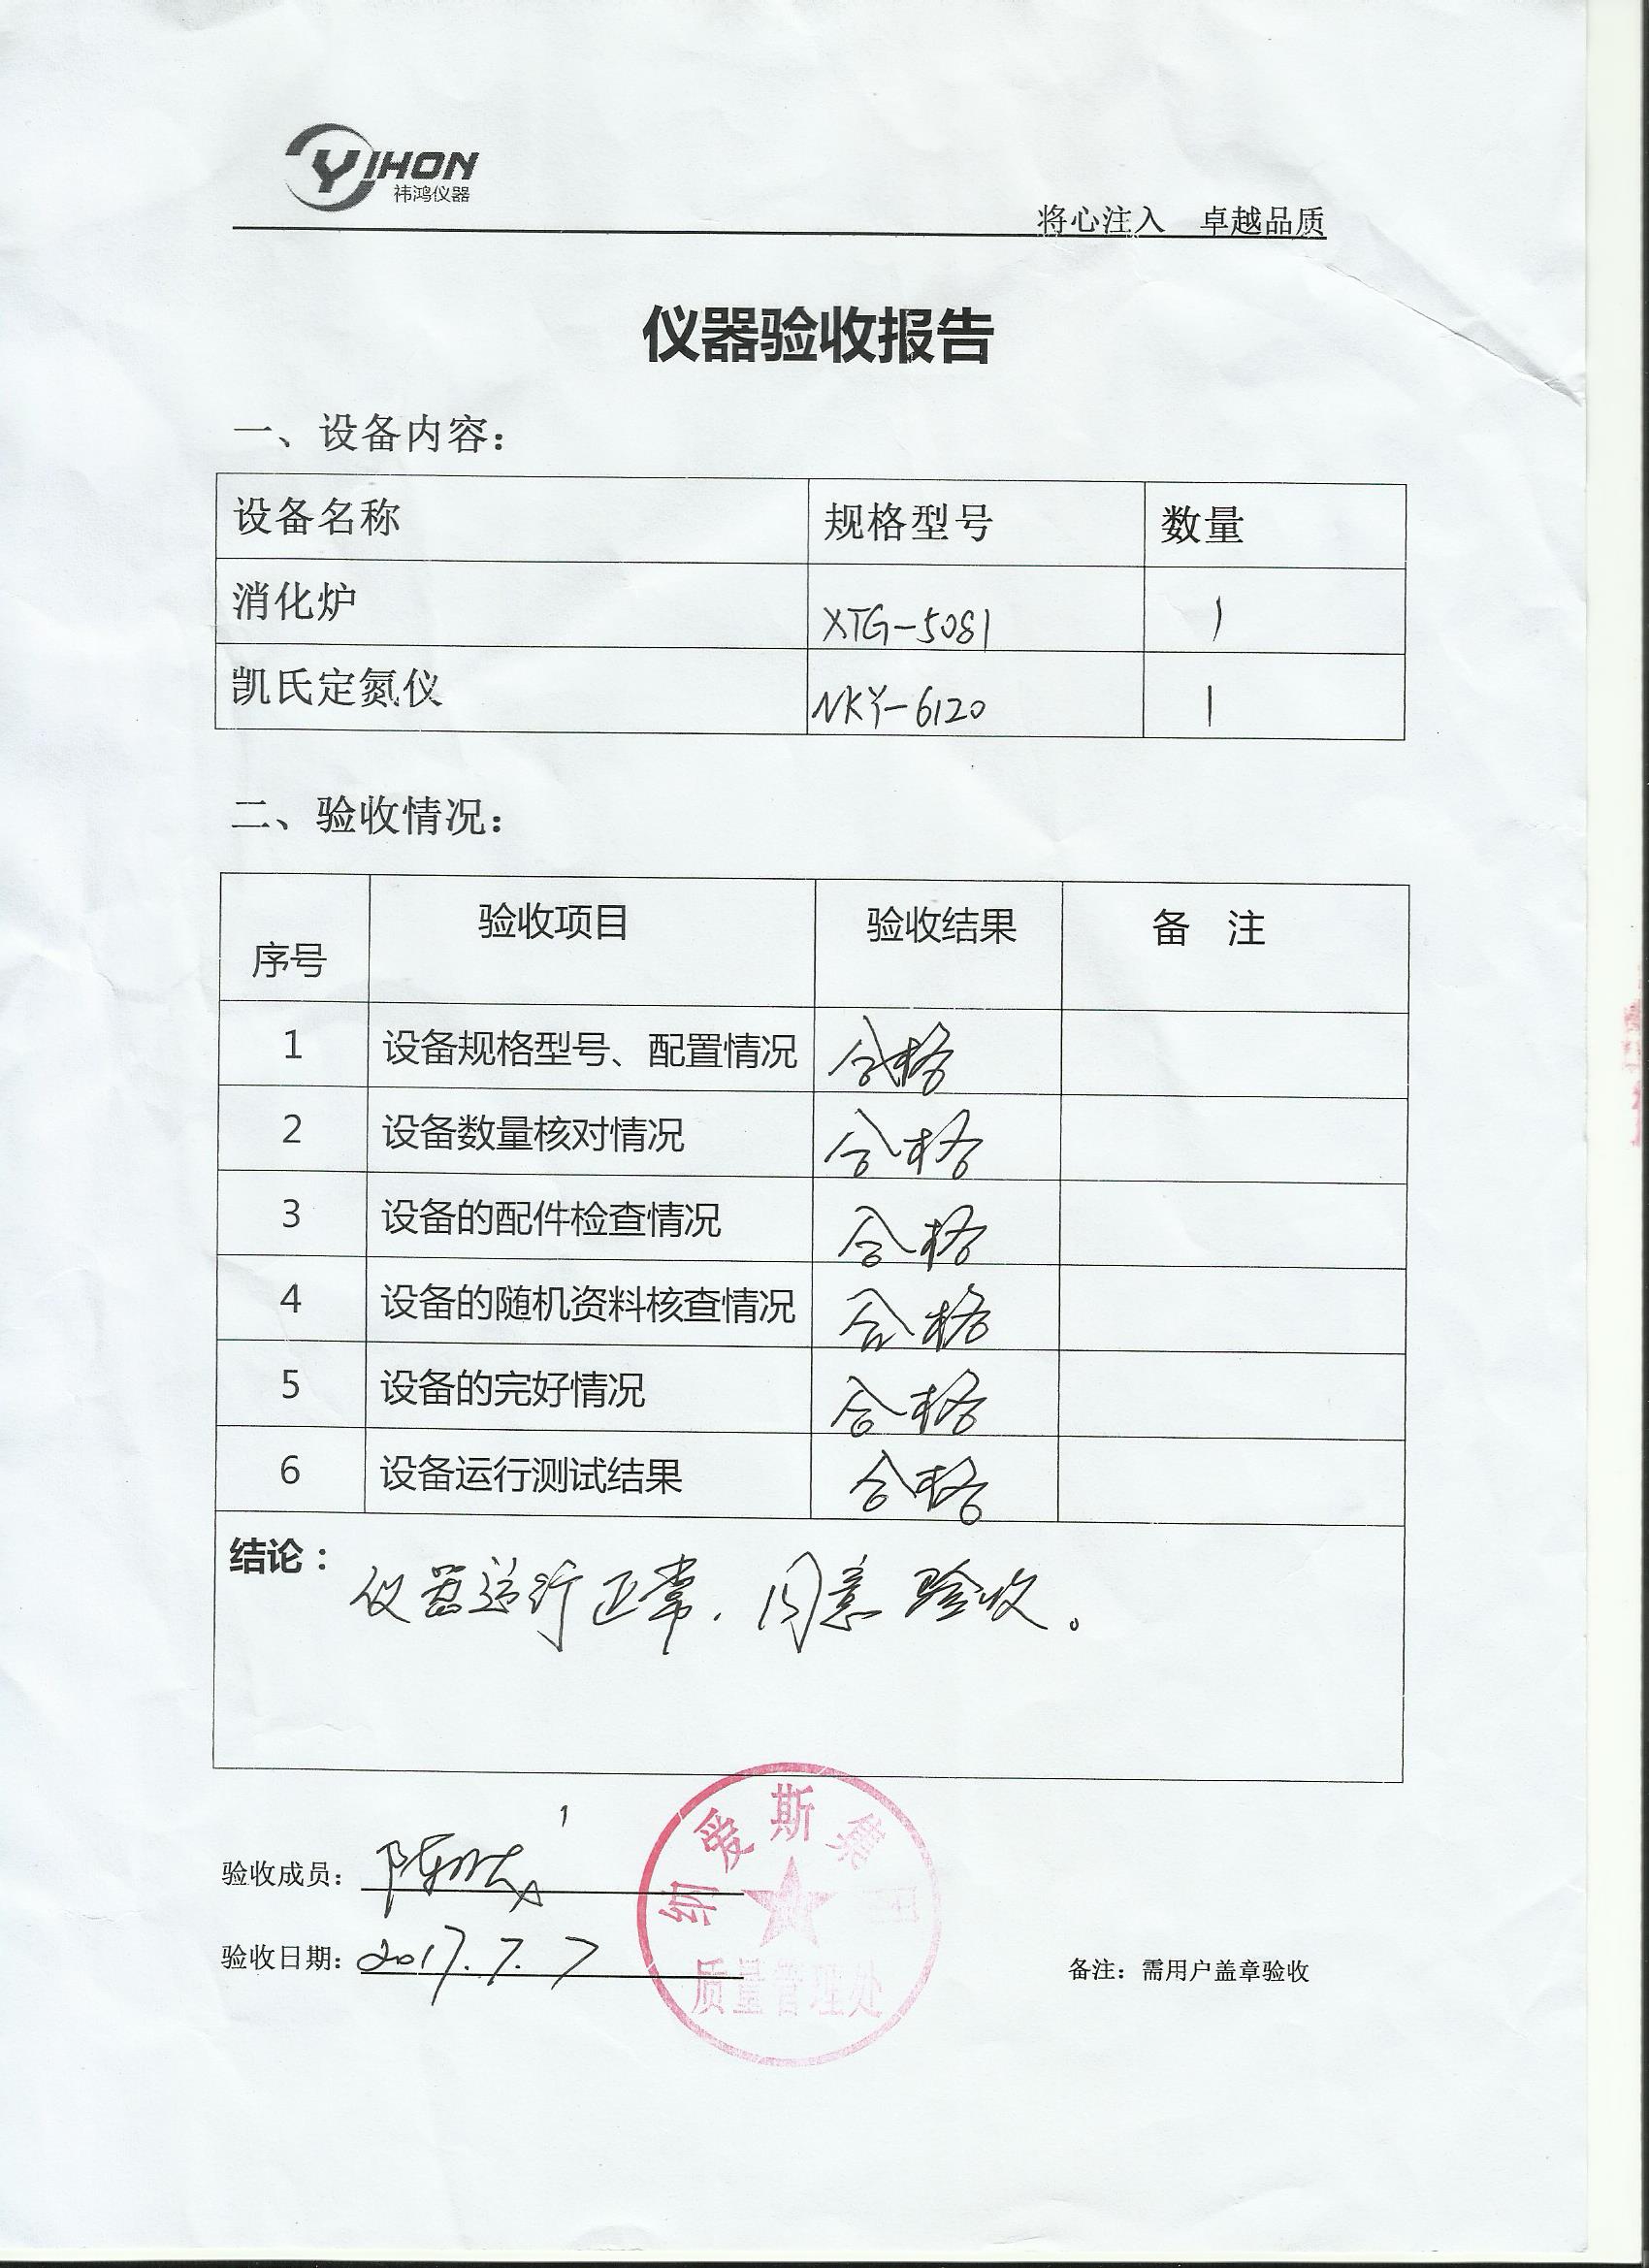 YIHON
祎鸿仪器
将心注入 卓越品质
仪器验收报告
一、设备内容：
设备名称 规格型号 数量
消化炉 XTG-5081 1
凯氏定氮仪 NKY-6120 1
二、验收情况：
序号 验收项目 验收结果 备 注
1 设备规格型号、配置情况 合格
2 设备数量核对情况 合格
3 设备的配件检查情况 合格
4 设备的随机资料核查情况 合格
5 设备的完好情况 合格
6 设备运行测试结果 合格
结论：
仪器运行正常，同意验收。
纳爱斯集团
质量管理处
验收成员：陈
验收日期：2017.7.7
备注：需用户盖章验收